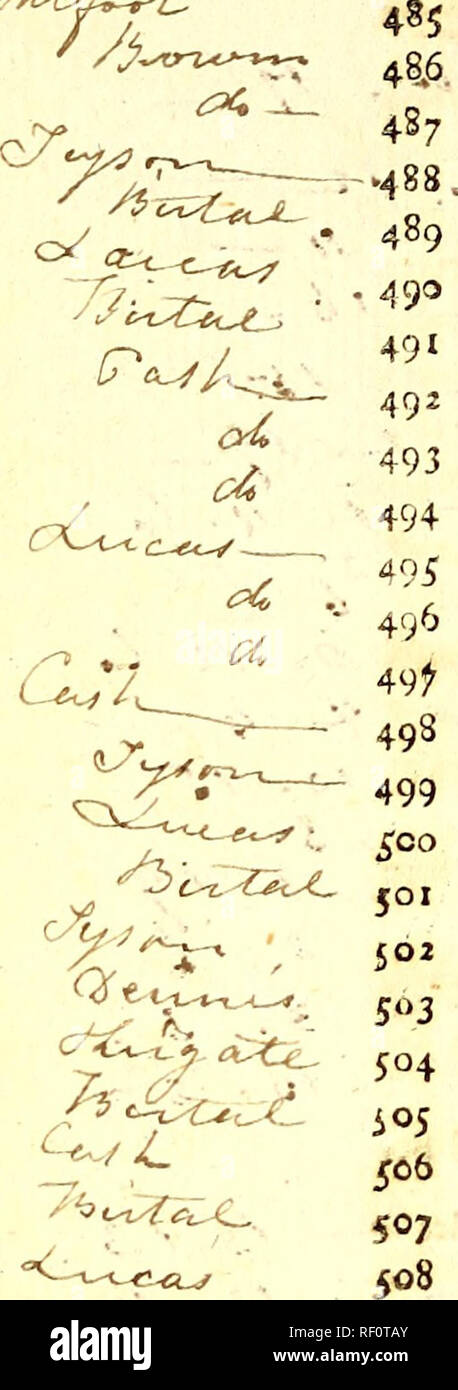 485
Brown 486
do 487
Tyson 488
Birtal 489
Lucas 490
Birtal 491
Cash 492
do 493
do 494
Lucas 495
do 496
do 497
Cash 498
Tyson 499
Lucas 500
Birtal 501
Tyson 502
Dennis 503
504
Birtal 505
Cash 506
Birtal 507
Lucas 508
alamy
alamy
Image ID: RF0TAY
www.alamy.com